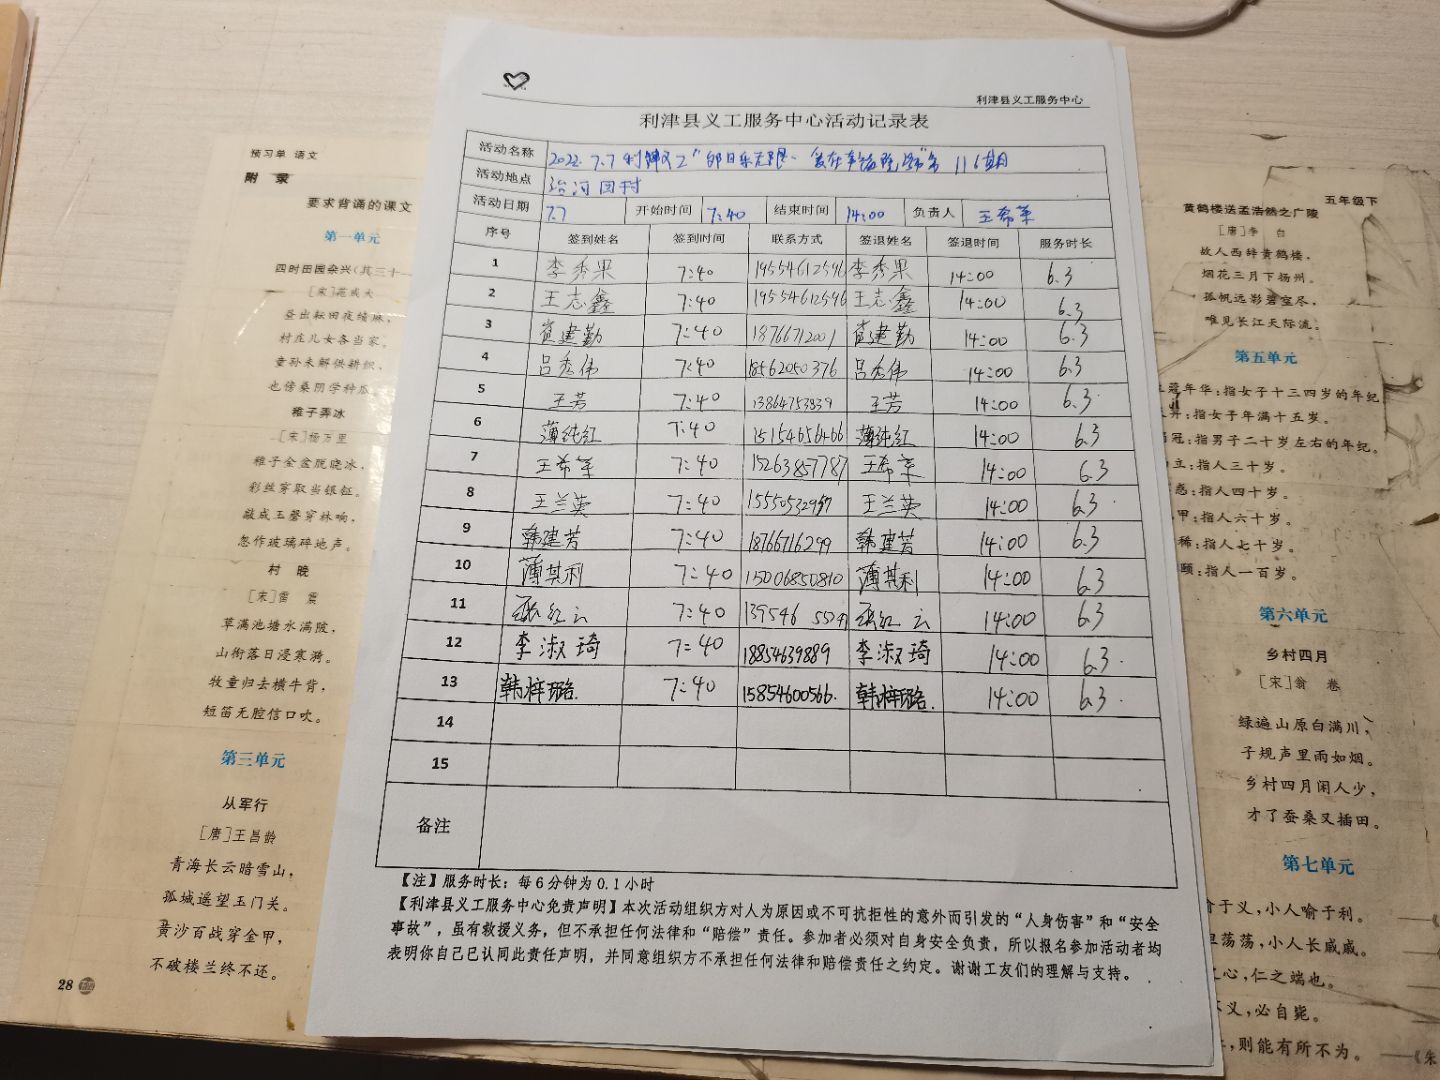 预习单 语文
附 录
要求背诵的课文
第一单元
四时田园杂兴(其三十一
[宋]范成大
昼出耘田夜绩麻,
村庄儿女各当家。
童孙未解供耕织,
也傍桑阴学种瓜。
稚子弄冰
[宋]杨万里
稚子金盆脱晓冰,
彩丝穿取当银钲。
敲成玉磬穿林响,
忽作玻璃碎地声。
村 晚
[宋]雷 震
草满池塘水满陂,
山衔落日浸寒漪。
牧童归去横牛背,
短笛无腔信口吹。
第三单元
从军行
[唐]王昌龄
青海长云暗雪山,
孤城遥望玉门关。
黄沙百战穿金甲,
不破楼兰终不还。
28
利津县义工服务中心
利津县义工服务中心活动记录表
活动名称 2022.7.7 利津义工"即日乐无限·爱在幸福院"第116期
活动地点 沿河回村
活动日期 7.7 开始时间 7:40 结束时间 14:00 负责人 王希革
序号 签到姓名 签到时间 联系方式 签退姓名 签退时间 服务时长
1 李秀果 7:40 19554612596 李秀果 14:00 6.3
2 王志鑫 7:40 19554612596 王志鑫 14:00 6.3
3 崔建勤 7:40 18766712001 崔建勤 14:00 6.3
4 吕秀伟 7:40 18562050376 吕秀伟 14:00 6.3
5 王芳 7:40 13864753939 王芳 14:00 6.3
6 薄纯红 7:40 15154656466 薄纯红 14:00 6.3
7 王希革 7:40 15263857787 王希革 14:00 6.3
8 王兰英 7:40 王兰英 14:00 6.3
9 韩建芳 7:40 18766716299 韩建芳 14:00 6.3
10 薄其利 7:40 15006850810 薄其利 14:00 6.3
11 张红云 7:40 139546 张红云 14:00 6.3
12 李淑琦 7:40 18854639889 李淑琦 14:00 6.3
13 韩梓璐. 7:40 15854600566. 韩梓璐. 14:00 6.3
14
15
备注
【注】服务时长:每6分钟为0.1小时
【利津县义工服务中心免责声明】本次活动组织方对人为原因或不可抗拒性的意外而引发的“人身伤害”和“安全
事故”,虽有救援义务,但不承担任何法律和“赔偿”责任。参加者必须对自身安全负责,所以报名参加活动者均
表明你自己已认同此责任声明,并同意组织方不承担任何法律和赔偿责任之约定。谢谢工友们的理解与支持。
五年级下
黄鹤楼送孟浩然之广陵
[唐]李 白
故人西辞黄鹤楼,
烟花三月下扬州。
孤帆远影碧空尽,
唯见长江天际流。
第五单元
蔻年华:指女子十三四岁的年纪
:指女子年满十五岁。
冠:指男子二十岁左右的年纪。
立:指人三十岁。
惑:指人四十岁。
甲:指人六十岁。
稀:指人七十岁。
颐:指人一百岁。
第六单元
乡村四月
[宋]翁 卷
绿遍山原白满川,
子规声里雨如烟。
乡村四月闲人少,
才了蚕桑又插田。
第七单元
于义,小人喻于利。
荡荡,小人长戚戚。
之心,仁之端也。
不义,必自毙。
,则能有所不为。 ——《朱